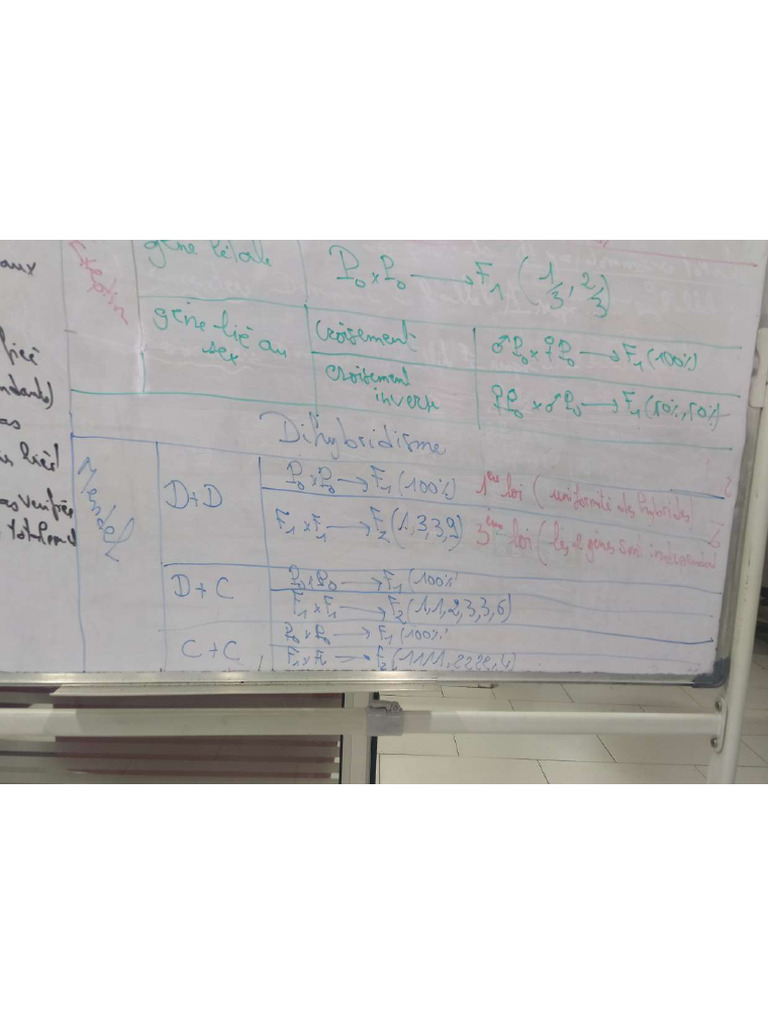 aux
gène létale
P₀ × P₀ → F₁ (1/3, 2/3)
gène lié au
sex
croisement
♂P₀ × ♀P₀ → F₁ (100%)
croisement
inverse
♀P₀ × ♂P₀ → F₁ (50%, 50%)
Dihybridisme
Mendel
D+D
P₀ × P₀ → F₁ (100%) 1ère loi (uniformité des hybrides)
F₁ × F₁ → F₂ (1,3,3,9) 3ème loi (les gènes sont
D+C
P₀ × P₀ → F₁ (100%
F₁ × F₁ → F₂ (1,1,2,3,3,6)
C+C
P₀ × P₀ → F₁ (100%
F₁ × F₁ → F₂ (1111,2222,4)